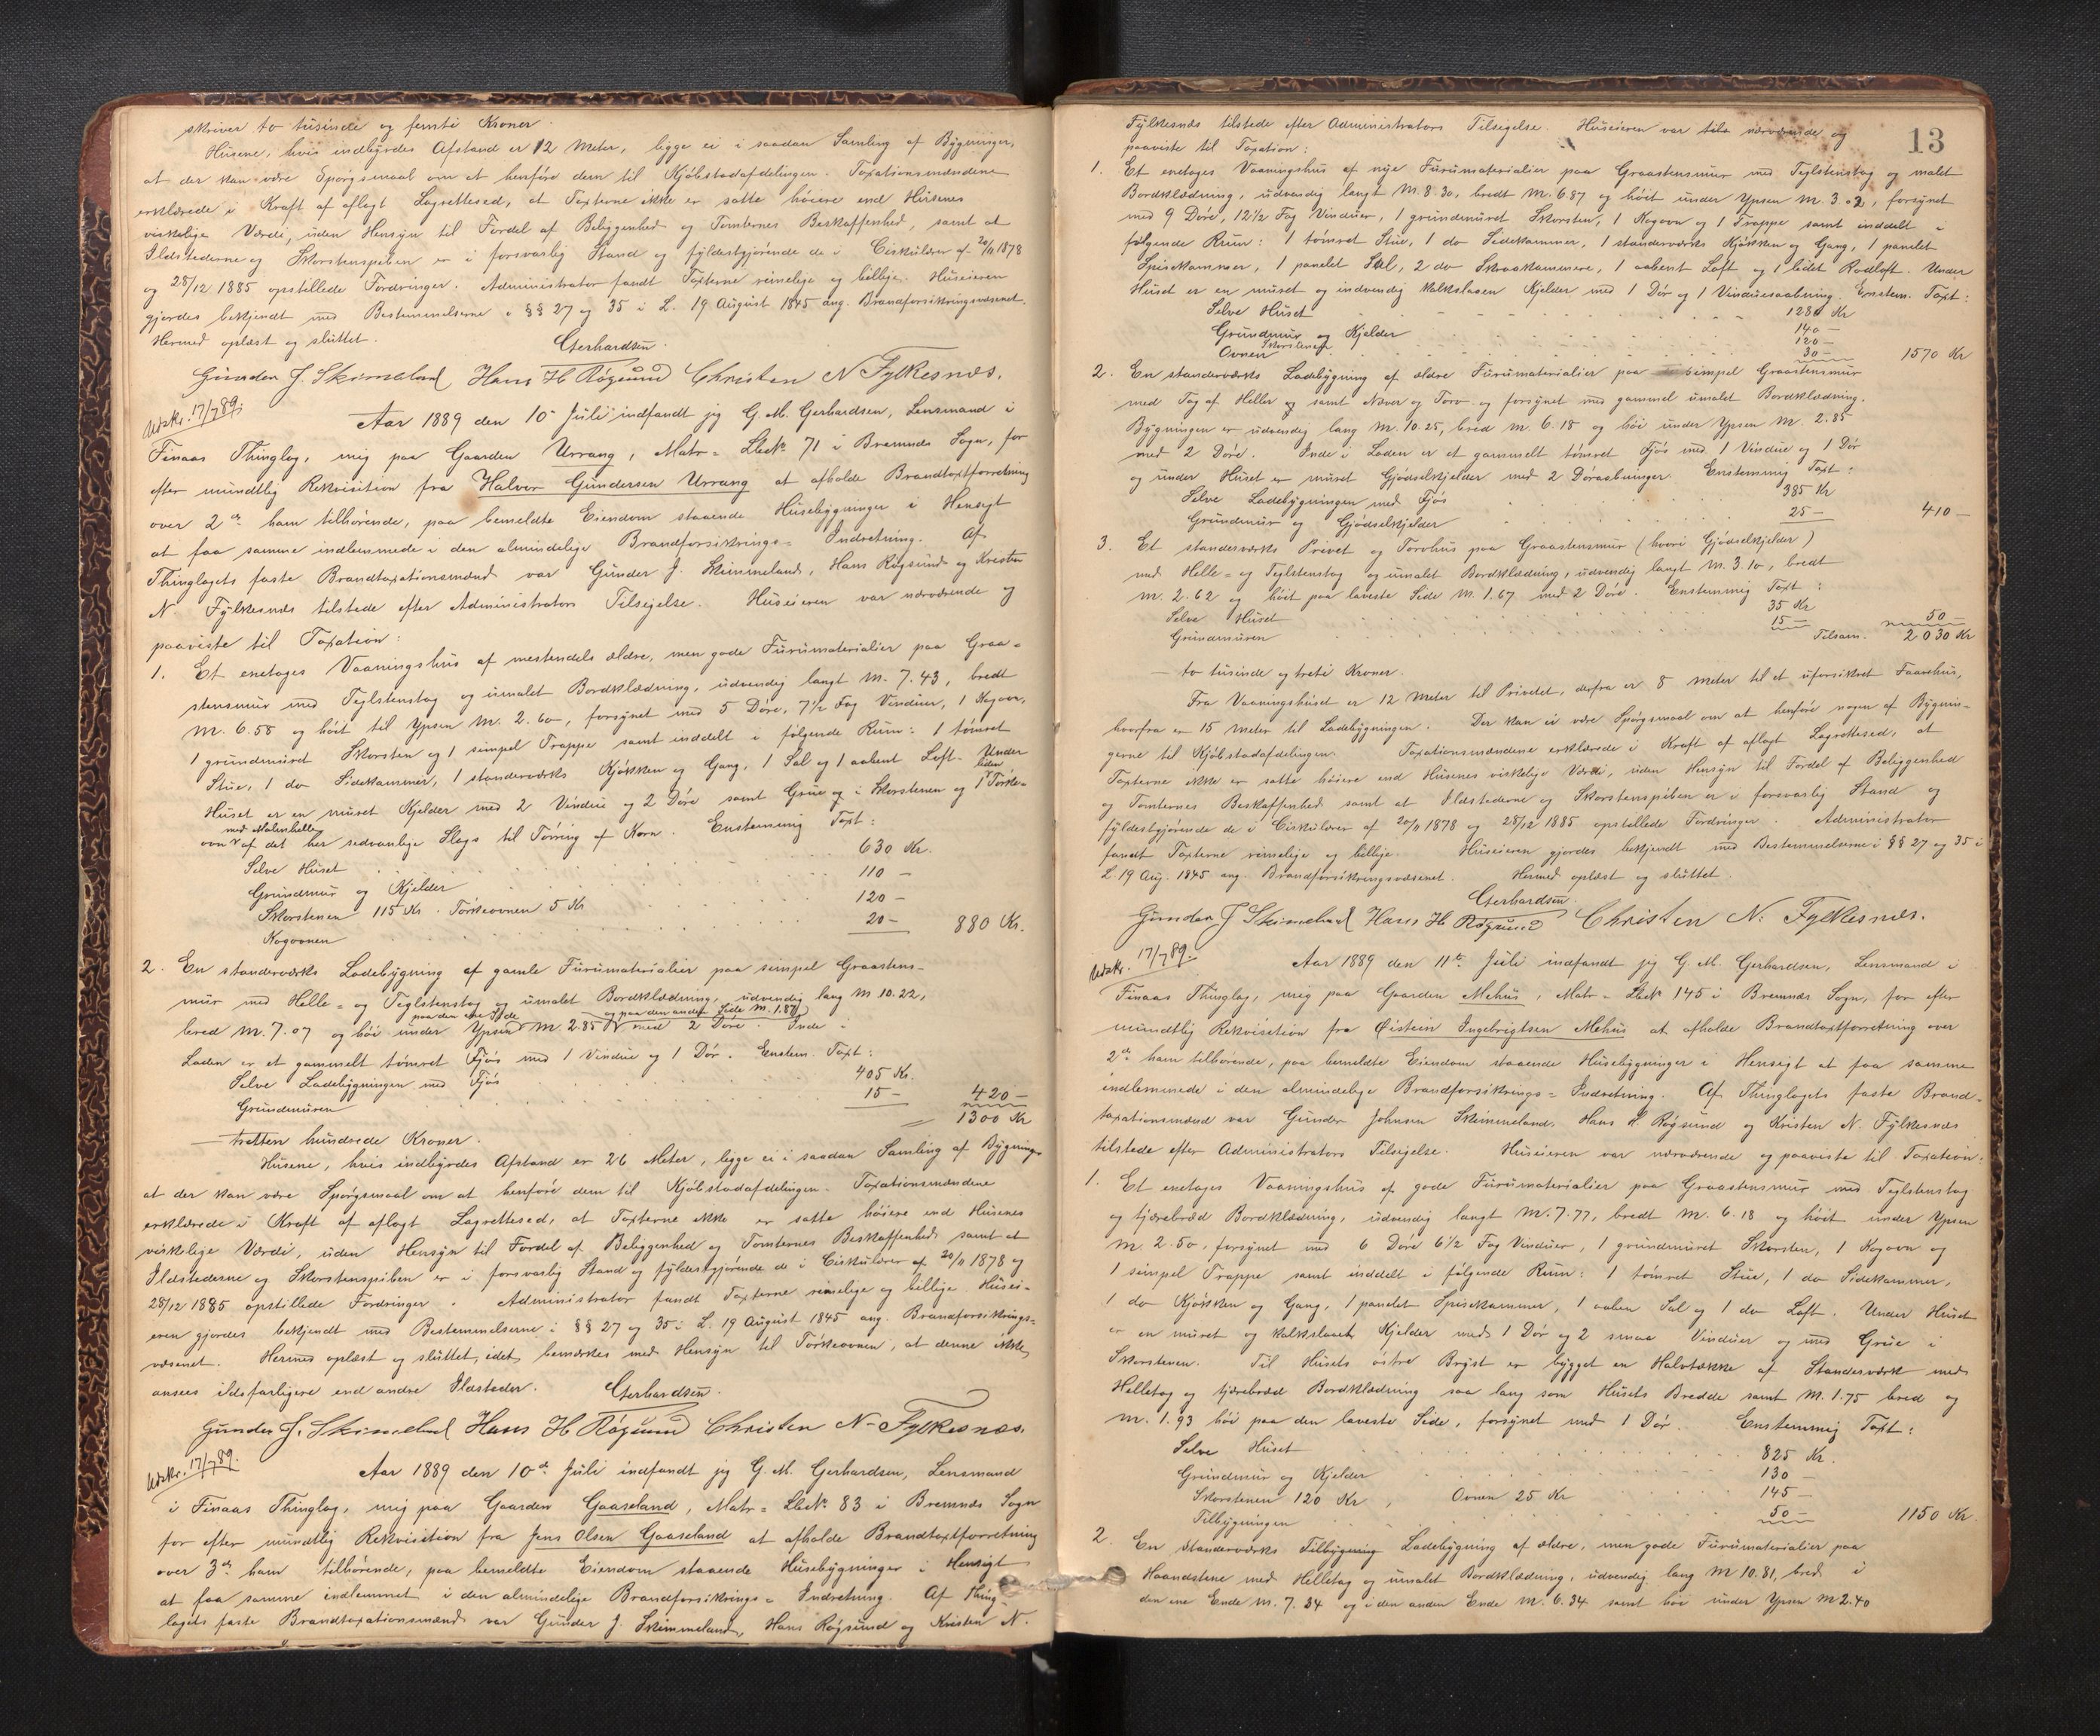 skriver to tusinde og femti Kroner.
Husene, hvis indbyrdes Afstand er 12 Meter, ligge ei i saadan Samling af Bygninger,
at der kan være Spørgsmaal om at henføre dem til Kjøbstadafdelingen. Taxationsmændene
erklærede i Kraft af aflagt Lagrettesed, at Taxterne ikke er satte høiere end Husenes
virkelige Værdi, uden Hensyn til Fordel af Beliggenhed og Tomternes Beskaffenhed, samt at
Ildstederne og Skorstenspiben er i forsvarlig Stand og fyldestgjørende de i Cirkulærer af 20/11 1878
og 28/12 1885 opstillede Fordringer. Administrator fandt Taxterne rimelige og billige. Huseieren
gjordes bekjendt med Bestemmelserne i §§ 27 og 35 i L. 19 August 1845 ang. Brandforsikringsvæsenet.
Hermed oplæst og sluttet.
Gerhardsen.
Gunder J. Skimeland Hans H Røgsund Christen N Fylkesnæs.
Udskr. 17/7 89.
Aar 1889 den 10 Juli indfandt jeg G. M. Gerhardsen, Lensmand i
Finaas Thinglag, mig paa Gaarden Urrang, Matr- Løbe№ 71 i Bremnæs Sogn, for
efter mundtlig Rekvisition fra Halvor Gundersen Urrang at afholde Brandtaxtforretning
over 2de ham tilhørende, paa bemeldte Eiendom staaende Husebygninger i Hensigt
at faa samme indlemmede i den almindelige Brandforsikrings- Indretning. Af
Thinglagets faste Brandtaxationsmænd var Gunder J. Skimmeland, Hans Røgsund og Kristen
N. Fylkesnæs tilstede efter Administrators Tilsigelse. Huseieren var nærværende og
paaviste til Taxation:
1. Et enetages Vaaningshus af mestendels ældre, men gode Furumaterialier paa Graa-
stensmur med Teglstenstag og umalet Bordklædning, udvendig langt M. 7.43, bredt
M. 6.58 og høit til Ypsen M. 2.60, forsynet med 5 Døre, 7½ Fag Vinduer, 1 Kogovn,
1 grundmuret Skorsten og 1 simpel Trappe samt inddelt i følgende Rum: 1 tømret
Stue, 1 do Sidekammer, 1 standerværks Kjøkken og Gang, 1 Sal og 1 aabent Loft. Under
Huset er en muret Kjelder med 2 Vindue og 2 Døre samt Grue og i Skorstenen og 1 liden Tørke-
ovn med Malenhelle af det her sedvanlige Slags til Tørring af Korn. Enstemmig Taxt:
Selve Huset 630 Kr.
Grundmur og Kjelder 110 -
Skorstenen 115 Kr. Tørkeovnen 5 Kr 120 -
Kogovnen 20 - 880 Kr.
2. En standerværks Ladebygning af gamle Furumaterialier paa simpel Graastens-
mur med Helle- og Teglstenstag og umalet Bordklædning, udvendig lang M 10.22,
bred M. 7.07 og høi under Ypsen paa den ene Side M 2.85 og paa den anden Side M. 1.87 med 2 Døre. Inde i
Laden er et gammelt tømret Fjøs med 1 Vindue og 1 Dør. Enstem. Taxt:
Selve Ladebygningen med Fjøs 405 Kr.
Grundmuren 15 - 420 -
1300 Kr
- tretten hundrede Kroner.
Husene, hvis indbyrdes Afstand er 26 Meter, ligge ei i saadan Samling af Bygninger
at der kan være Spørgsmaal om at henføre dem til Kjøbstadafdelingen. Taxationsmændene
erklærede i Kraft af aflagt Lagrettesed, at Taxterne ikke er satte høiere end Husenes
virkelige Værdi, uden Hensyn til Fordel af Beliggenhed og Tomternes Beskaffenhed samt at
Ildstederne og Skorstenspiben er i forsvarlig Stand og fyldestgjørende de i Cirkulærer af 20/11 1878 og
28/12 1885 opstillede Fordringer. Administrator fandt Taxterne rimelige og billige. Husei-
eren gjordes bekjendt med Bestemmelserne i §§ 27 og 35 i L. 19 August 1845 ang. Brandforsikrings-
væsenet. Hermed oplæst og sluttet, idet bemærkes med Hensyn til Tørkeovnen, at denne ikke
ansees ildsfarligere end andre Ildsteder.
Gerhardsen.
Gunder J. Skimeland Hans H Røgsund Christen N- Fylkesnæs.
Udskr. 17/7 89.
Aar 1889 den 10de Juli indfandt jeg G. M. Gerhardsen, Lensmand
i Finaas Thinglag, mig paa Gaarden Gaaseland, Matr- Løbe№ 83 i Bremnæs Sogn
for efter mundtlig Rekvisition fra Jens Olsen Gaaseland at afholde Brandtaxtforretning
over 3de ham tilhørende, paa bemeldte Eiendom staaende Husebygninger i Hensigt
at faa samme indlemmet i den almindelige Brandforsikrings- Indretning. Af Thing-
lagets faste Brandtaxationsmænd var Gunder J. Skimmeland, Hans Røgsund og Kristen N.
13
Fylkesnæs tilstede efter Administrators Tilsigelse. Huseieren var nærværende og
paaviste til Taxation:
1. Et enetages Vaaningshus af nye Furumaterialier paa Graastensmur med Teglstenstag og malet
Bordklædning, udvendig langt M. 8.30, bredt M. 6.87 og høit under Ypsen M. 3.02, forsynet
med 9 Døre, 12½ Fag Vinduer, 1 grundmuret Skorsten, 1 Kogovn og 1 Trappe samt inddelt i
følgende Rum: 1 tømret Stue, 1 do Sidekammer, 1 standerværks Kjøkken og Gang, 1 panelet
Spisekammer, 1 panelet Sal, 2 do Skraakammere, 1 aabent Loft og 1 lidet Rødloft. Under
Huset er en muret og indvendig kalkslagen Kjelder med 1 Dør og 1 Vinduesaabning. Enstem. Taxt:
Selve Huset 1280 Kr
Grundmur og Kjelder 140 -
Skorstenen 120 -
Ovnen 30 - 1570 Kr
2. En standerværks Ladebygning af ældre Furumaterialier paa simpel Graastensmur
med Tag af Heller og samt Næver og Torv og forsynet med gammel umalet Bordklædning.
Bygningen er udvendig lang M. 10.25, bred M. 6.18 og høi under Ypsen M. 2.85
med 2 Døre. Inde i Laden er et gammelt tømret Fjøs med 1 Vindue og 1 Dør
og under Huset er muret Gjødselkjelder med 2 Døraabninger. Enstemmig Taxt:
Selve Ladebygningen med Fjøs 385 Kr
Grundmur og Gjødselkjelder 25 - 410 -
3. Et standerværks Privet og Torvhus paa Graastensmur (hvori Gjødselkjelder)
med Helle- og Teglstenstag og umalet Bordklædning, udvendig langt M. 3.10, bredt
M. 2.62 og høit paa laveste Side M. 1.67 med 2 Døre. Enstemmig Taxt:
Selve Huset 35 Kr
Grundmuren 15 - 50 -
Tilsam. 2030 Kr
- to tusinde og treti Kroner.
Fra Vaaningshuset er 12 Meter til Privetet, derfra er 8 Meter til et uforsikret Faarehus,
hvorfra er 15 Meter til Ladebygningen. Der kan ei være Spørgsmaal om at henføre nogen af Bygnin-
gerne til Kjøbstadafdelingen. Taxationsmændene erklærede i Kraft af aflagt Lagrettesed, at
Taxterne ikke er satte høiere end Husenes virkelige Værdi, uden Hensyn til Fordel af Beliggenhed
og Tomternes Beskaffenhed samt at Ildstederne og Skorstenspiben er i forsvarlig Stand og
fyldestgjørende de i Cirkulærer af 20/11 1878 og 28/12 1885 opstillede Fordringer. Administrator
fandt Taxterne rimelige og billige. Huseieren gjordes bekjendt med Bestemmelserne i §§ 27 og 35 i
L. 19 Aug. 1845 ang. Brandforsikringsvæsenet. Hermed oplæst og sluttet.
Gerhardsen.
Gunder J Skimeland Hans H Røgsund Christen N: Fylkesnæs.
Udskr. 17/7 89.
Aar 1889 den 11te Juli indfandt jeg G. M. Gerhardsen, Lensmand i
Finaas Thinglag, mig paa Gaarden Mehus, Matr- Løbe№ 145 i Bremnæs Sogn, for efter
mundtlig Rekvisition fra Øistein Ingebrigtsen Mehus at afholde Brandtaxtforretning over
2de ham tilhørende, paa bemeldte Eiendom staaende Husebygninger i Hensigt at faa samme
indlemmede i den almindelige Brandforsikrings- Indretning. Af Thinglagets faste Brand-
taxationsmænd var Gunder Johnsen Skimmeland, Hans H. Røgsund og Kristen N. Fylkesnæs
tilstede efter Administrators Tilsigelse. Huseieren var nærværende og paaviste til Taxation:
1. Et enetages Vaaningshus af gode Furumaterialier paa Graastensmur med Teglstenstag
og tjærebrød Bordklædning, udvendig langt M. 7.77, bredt M. 6.18 og høit under Ypsen
M. 2.50, forsynet med 6 Døre 6½ Fag Vinduer, 1 grundmuret Skorsten, 1 Kogovn og
1 simpel Trappe samt inddelt i følgende Rum: 1 tømret Stue, 1 do Sidekammer,
1 do Kjøkken og Gang, 1 panelet Spisekammer, 1 aaben Sal og 1 do Loft. Under Huset
er en muret og kalkslaaet Kjelder med 1 Dør og 2 smaa Vinduer og med Grue i
Skorstenen. Til Husets østre Bryst er bygget en Halvtække af Standerværk med
Helletag og tjærebrød Bordklædning saa lang som Husets Bredde samt M. 1.75 bred og
M. 1.93 høi paa den laveste Side, forsynet med 1 Dør. Enstemmig Taxt:
Selve Huset 825 Kr.
Grundmur og Kjelder 130 -
Skorstenen 120 Kr, Ovnen 25 Kr 145 -
Tilbygningen 50 - 1150 Kr.
2. En standerværks Tilbygning Ladebygning af ældre, men gode Furumaterialier paa
Haandstene med Helletag og umalet Bordklædning, udvendig lang M 10.81, bred i
den ene Ende M. 7.34 og i den anden Ende M. 6.34 samt høi under Ypsen M 2.40